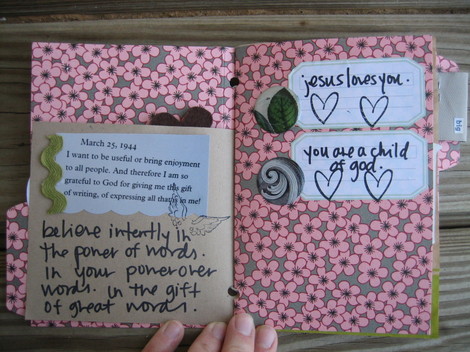 March 25, 1944
I want to be useful or bring enjoyment
to all people. And therefore I am so
grateful to God for giving me this gift
of writing, of expressing all that is in me!
believe intently in
the power of words.
in your power over
words. in the gift
of great words.
jesus loves you.
you are a child
of god.
big